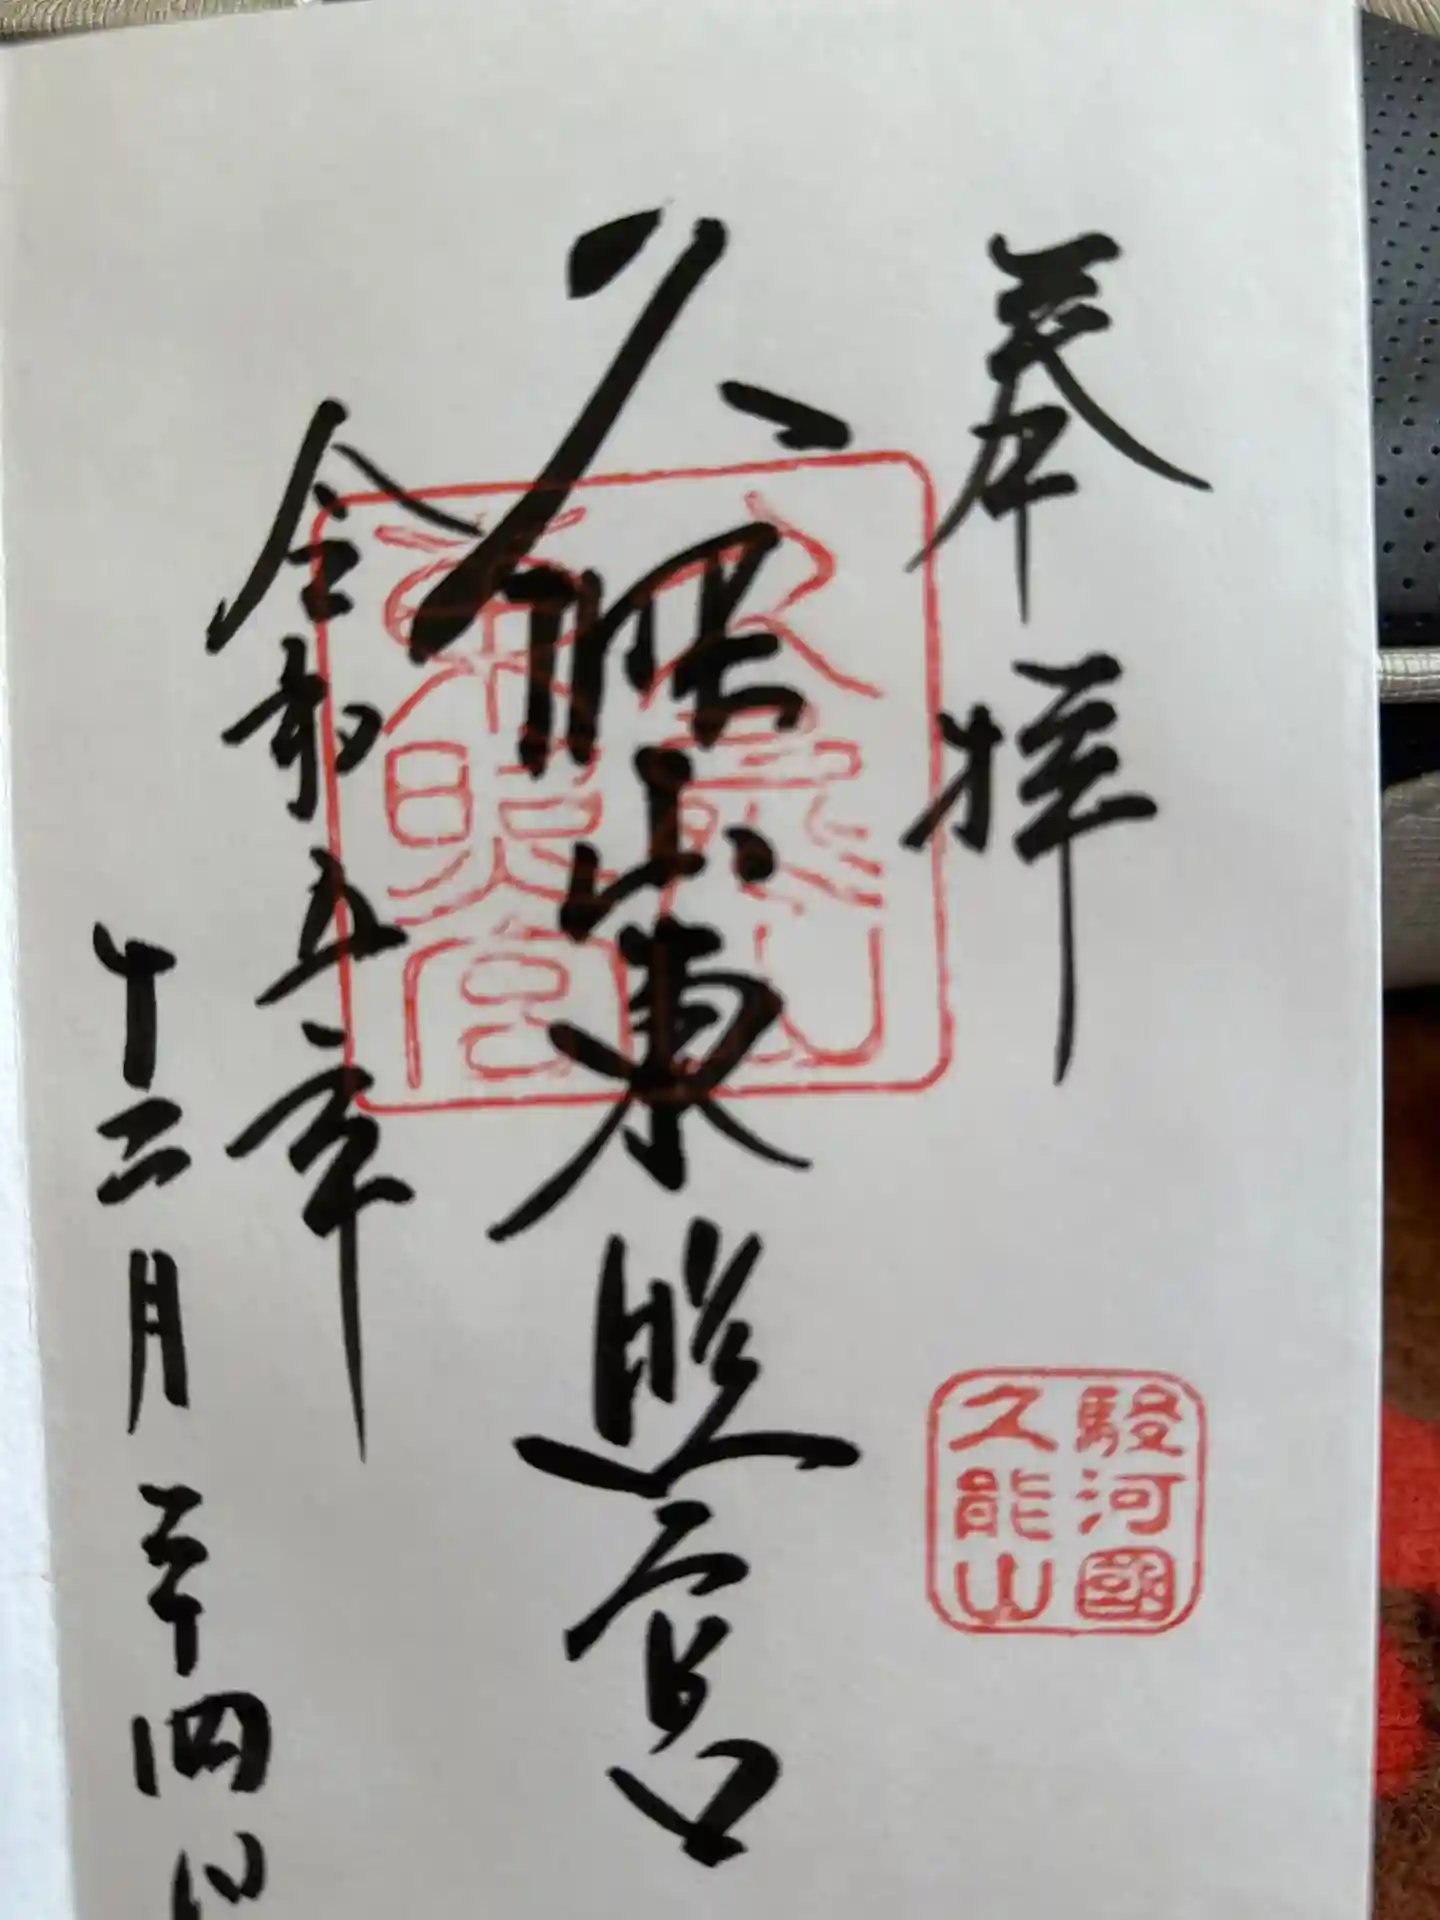 奉拝
駿河國
久能山
久能山東照宮
久能山
東照宮
令和五年
十二月二十四日